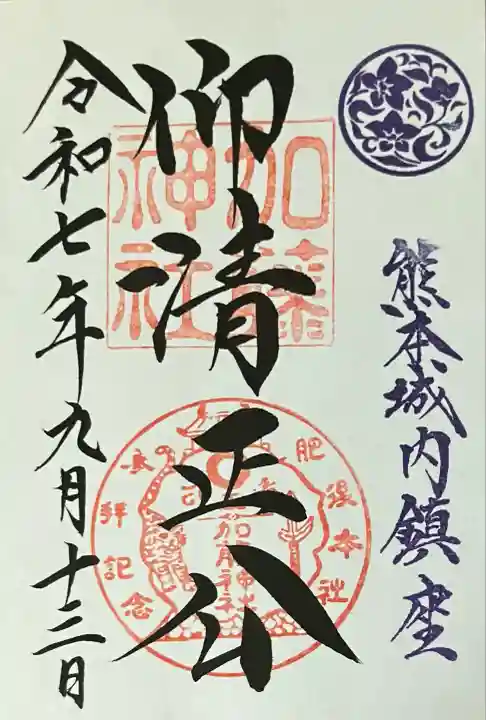 熊本城内鎮座
仰清正公
加藤
神社
肥後本社
参拝記念
令和七年九月十三日